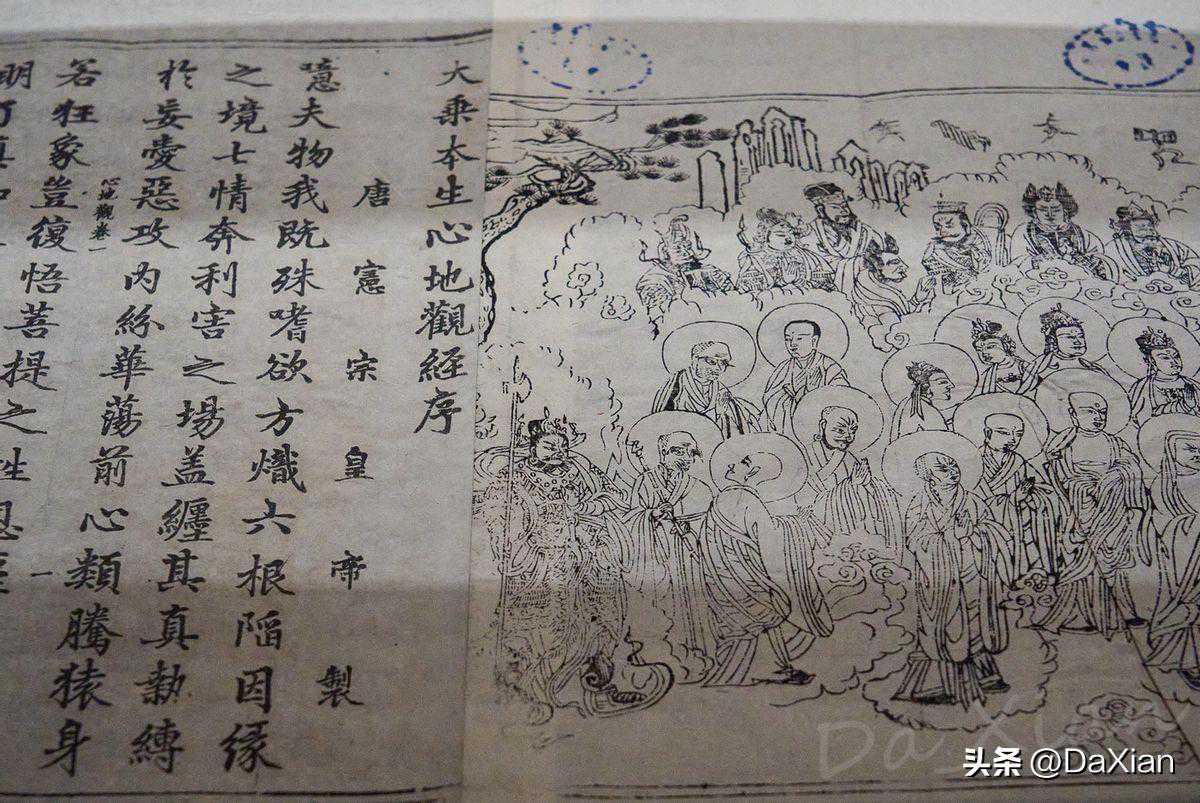 大乗本生心地觀經序
唐憲宗皇帝製
噫夫物我既殊嗜欲方熾六根陷因緣
之境七情奔利害之場盖纏其真執縛
於妄愛惡攻內紛華蕩前心類騰猿身
心地觀卷一
一
若狂象豈復悟菩提之性
明
Da Xian
头条 @DaXian